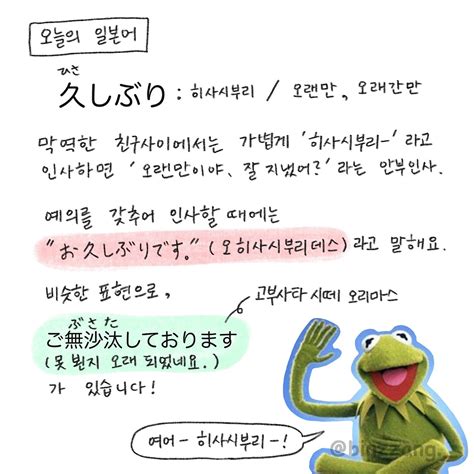 오늘의 일본어
ひさ
久しぶり : 히사시부리 / 오랜만, 오래간만
막역한 친구사이에서는 가볍게 '히사시부리-' 라고
인사하면 ' 오랜만이야, 잘 지냈어?' 라는 안부인사.
예의를 갖추어 인사할 때에는
"お久しぶりです。" (오히사시부리데스) 라고 말해요.
비슷한 표현으로,
고부사타 시떼 오리마스
ぶさた
ご無沙汰しております
(못 뵌지 오래 되었네요.)
가 있습니다!
여어- 히사시부리-!